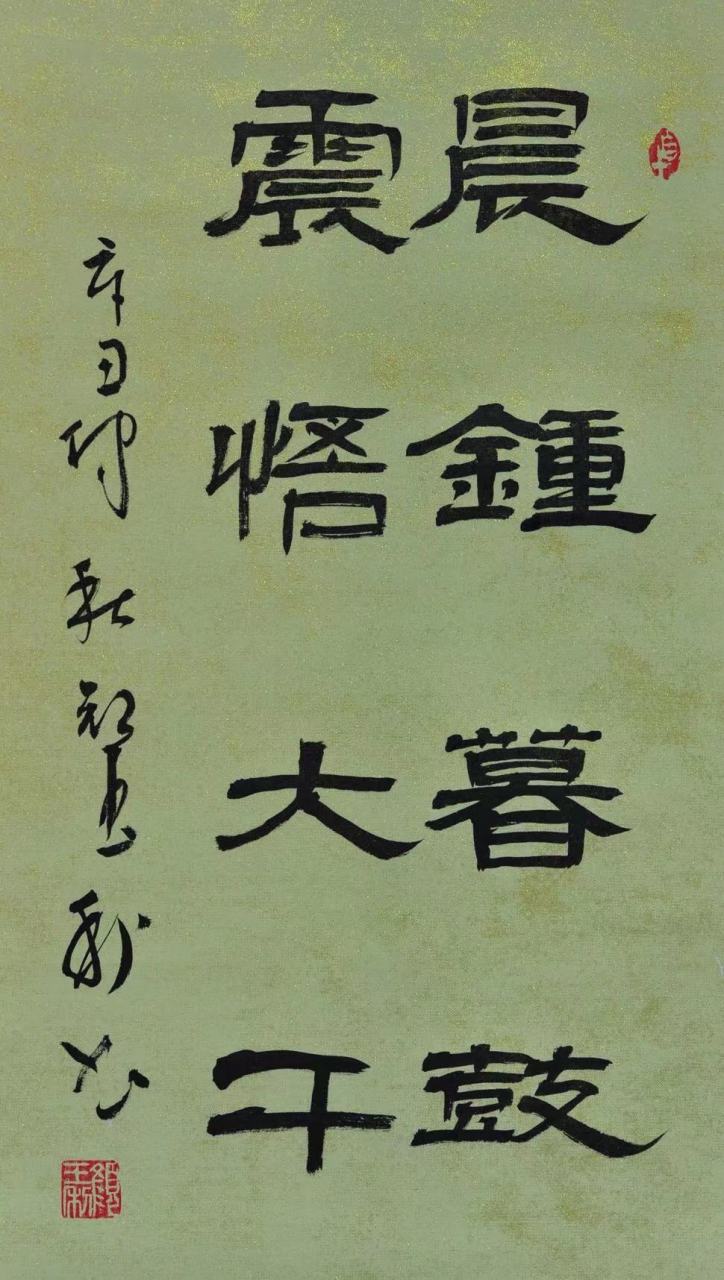 晨鍾暮鼓
震悟大千
辛丑仲秋利书